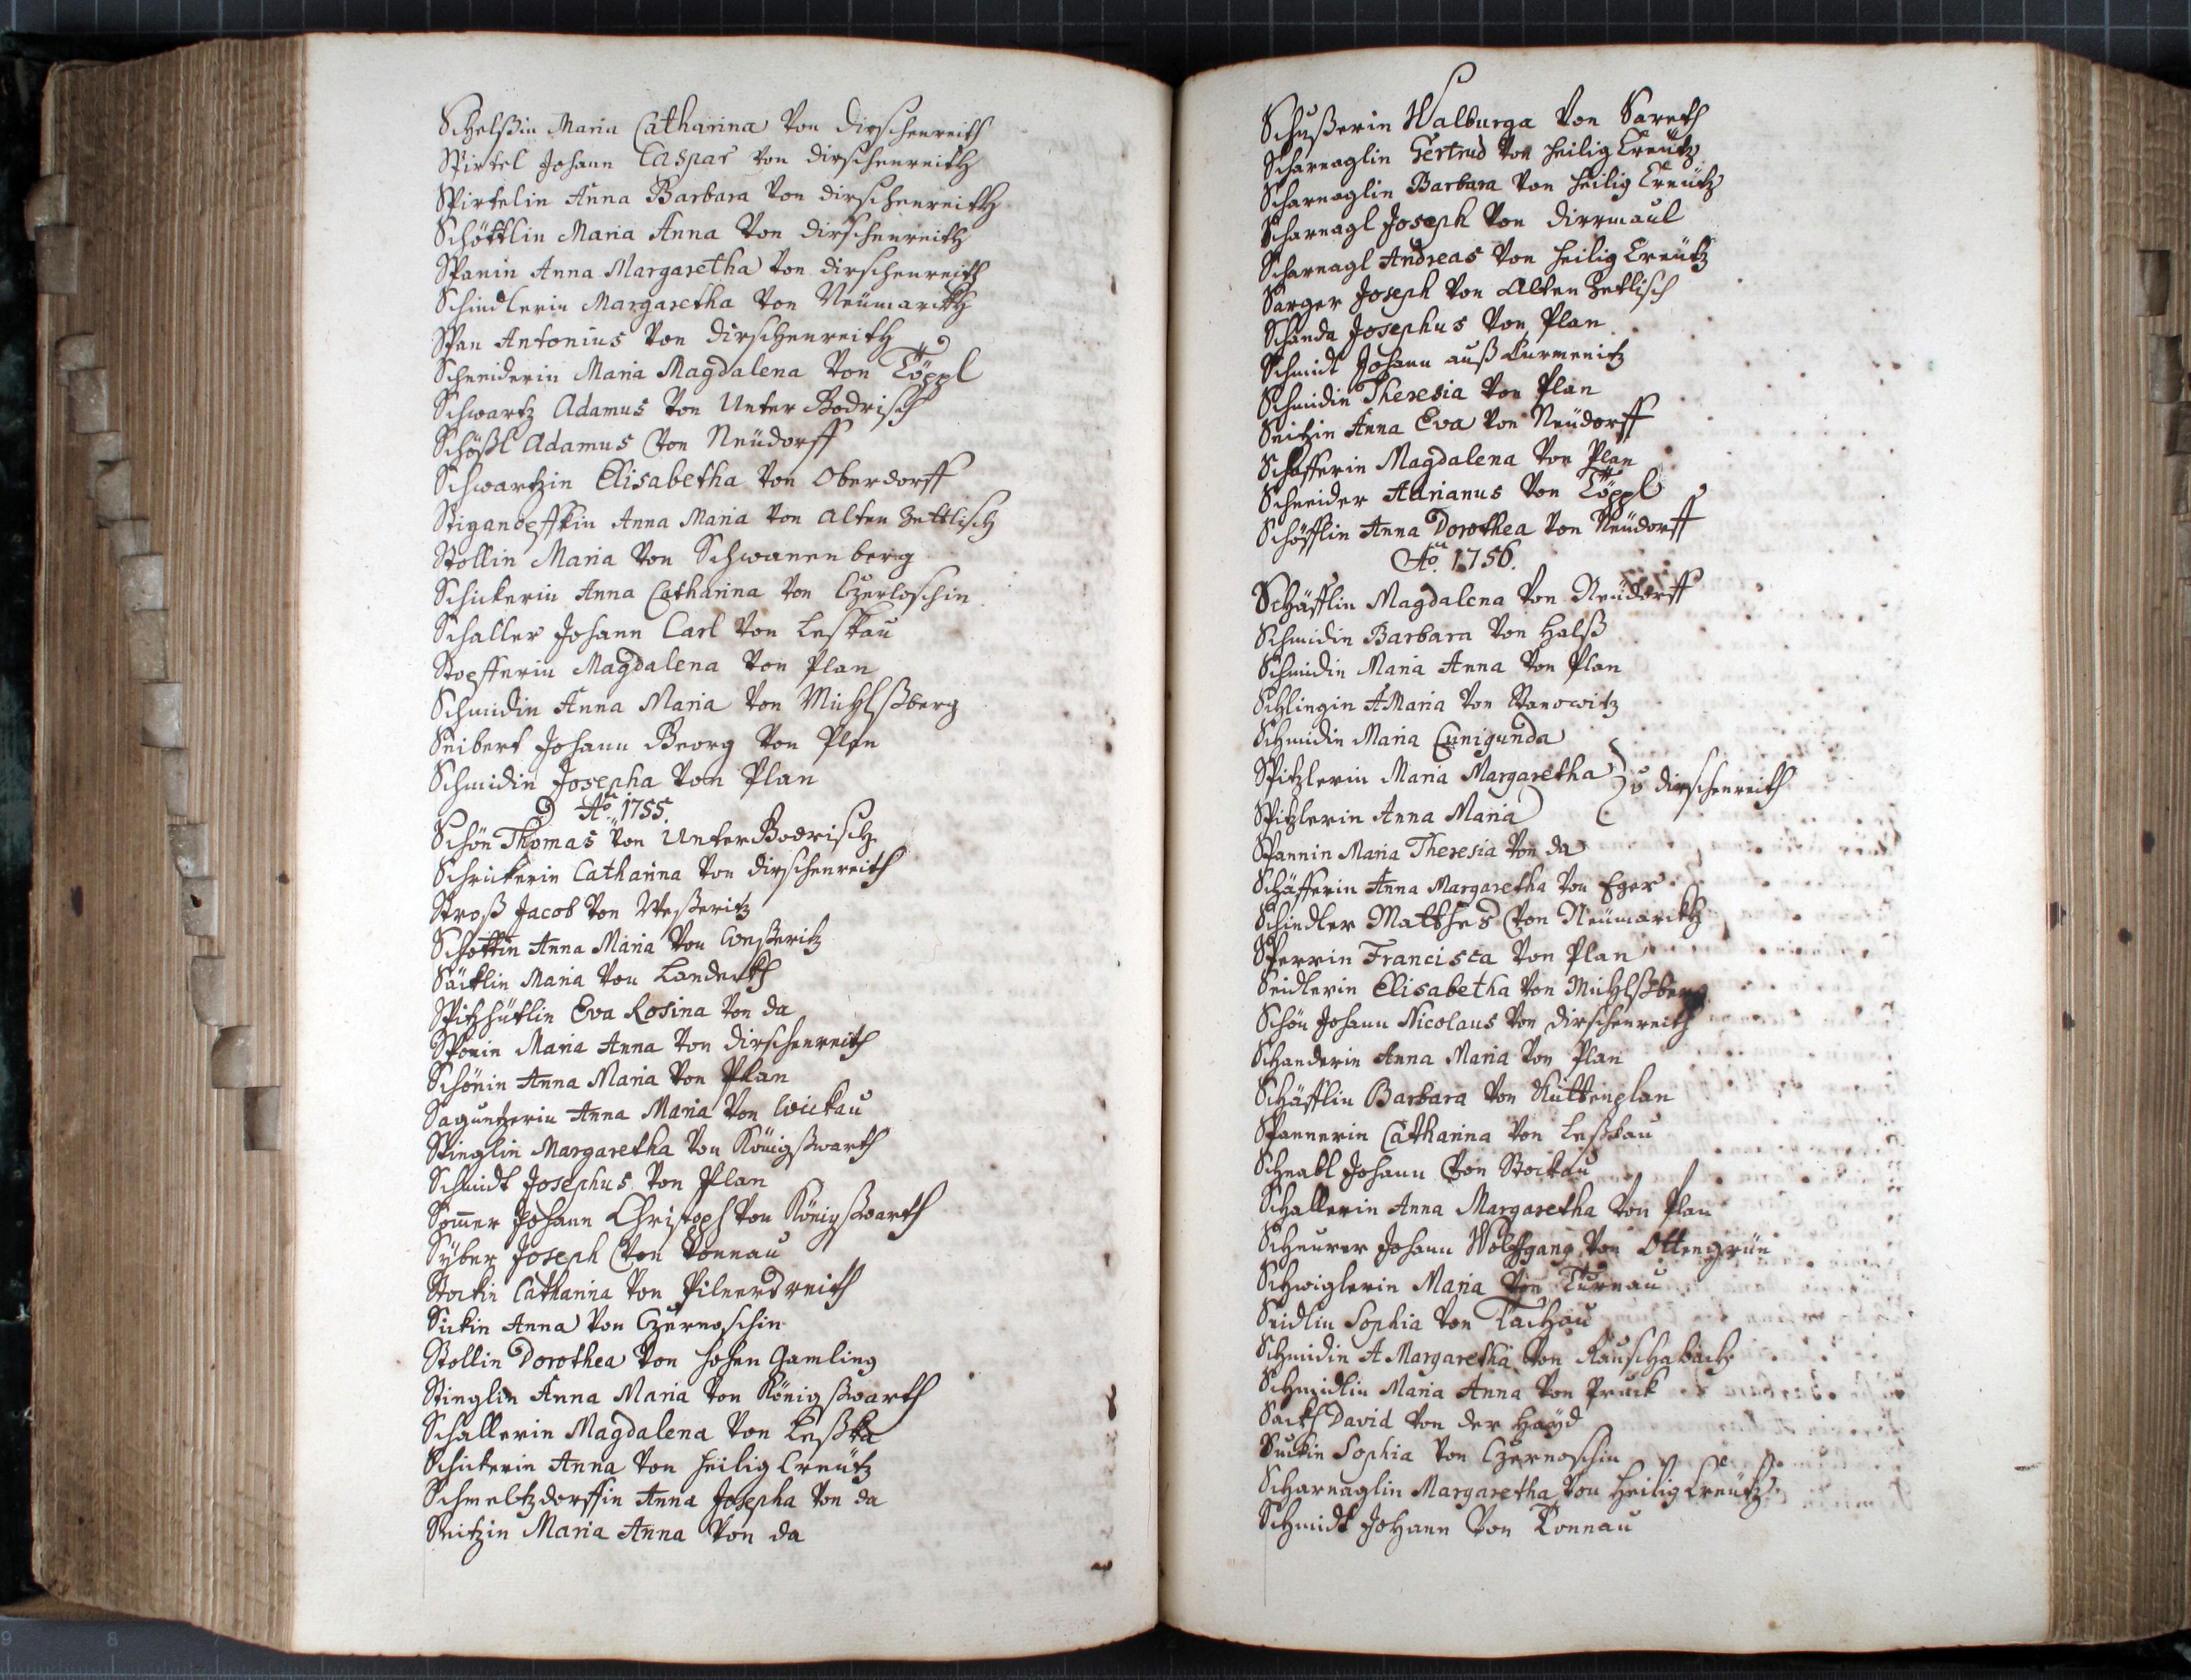 Schelßin Maria Catharina von dirschenreith
Spirtel Johann Caspar von dirschenreith
Spirtelin Anna Barbara von dirschenreith
Schöttlin Maria Anna von dirschenreith
Spanin Anna Margaretha von dirschenreith
Schindlerin Margaretha von Neümarckh
Span Antonius von dirschenreith
Schneiderin Maria Magdalena von Töppl
Schwartz Adamus von Unter Bodrisch
Schößl Adamus von Neüdorff
Schwartzin Elisabetha von Oberdorff
Anna Maria von Alten Zettlisch
Stollin Maria von Schwanenberg
Schickerin Anna Catharina von Czerloschin
Schaller Johann Carl von Leskau
Stoefferin Magdalena von Plan
Schmidin Anna Maria von Mühlßberg
Seibert Johann Georg von Plan
Schmidin Josepha von Plan
Ao. 1755.
Schön Thomas von Unter Bodrisch
Schrickerin Catharina von dirschenreith
Stroß Jacob von Weßeritz
Schottin Anna Maria von Weßeritz
Säcklin Maria von Landeckh
Spitzhütlin Eva Rosina von da
Spönin Maria Anna von dirschenreith
Schönin Anna Maria von Plan
Anna Maria von Wickau
Stinglin Margaretha von Königßwarth
Schmidt Josephus von Plan
Som̄er Johann Christoph von Königßwarth
Syber Joseph von Connau
Stockin Catharina von Pilnerdreith
Sickin Anna von Czernoschin
Stollin Dorothea von hohen Gamling
Stinglin Anna Maria von Königßwarth
Schallerin Magdalena von Leßka
Schickerin Anna von heilig Creütz
Schmeltzdorffin Anna Josepha von da
Seitzin Maria Anna von da
Schußerin Walburga von Sareth
Scharnaglin Gertrud von heilig Creütz
Scharnaglin Barbara von heilig Creütz
Scharnagl Joseph von dirrmaul
Scharnagl Andreas von heilig Creütz
Sarger Joseph von Alten Zetlisch
Schanda Josephus von Plan
Schmidt Johann auß Kurmenitz
Schmidin Theresia von Plan
Seitzin Anna Eva von Neüdorff
Schafferin Magdalena von Plan
Schneider Adrianus von Töppl
Schöfflin Anna Dorothea von Neüdorff
Ao. 1756.
Schäfflin Magdalena von Neüdorff
Schmidin Barbara von Halß
Schmidin Maria Anna von Plan
Schlingin A Maria von Stanowitz
Schmidin Maria Cunigunda
Spitzlerin Maria Margaretha } zu dirschenreith
Spitzlerin Anna Maria
Spannin Maria Theresia von da
Schäfferin Anna Margaretha von Eger
Schindler Matthes von Neümarckh
Sperrin Francisca von Plan
Seidlerin Elisabetha von Mühlßberg
Schön Johann Nicolaus von dirschenreith
Schanderin Anna Maria von Plan
Schäfflin Barbara von Kuttenplan
Spannerin Catharina von Leßkau
Schnabl Johann von Stockau
Schallerin Anna Margaretha von Plan
Scheurer Johann Wolffgang von Ottengrün
Schwiglerin Maria von Turnau
Seidlin Sophia von Tachau
Schmidin A Margaretha von Rauschabach
Schmidlin Maria Anna von Pruck
Sackh David von der Hayd
Suckin Sophia von Czernoschin
Scharnaglin Margaretha von heilig Creütz
Schmidt Johann von Connau